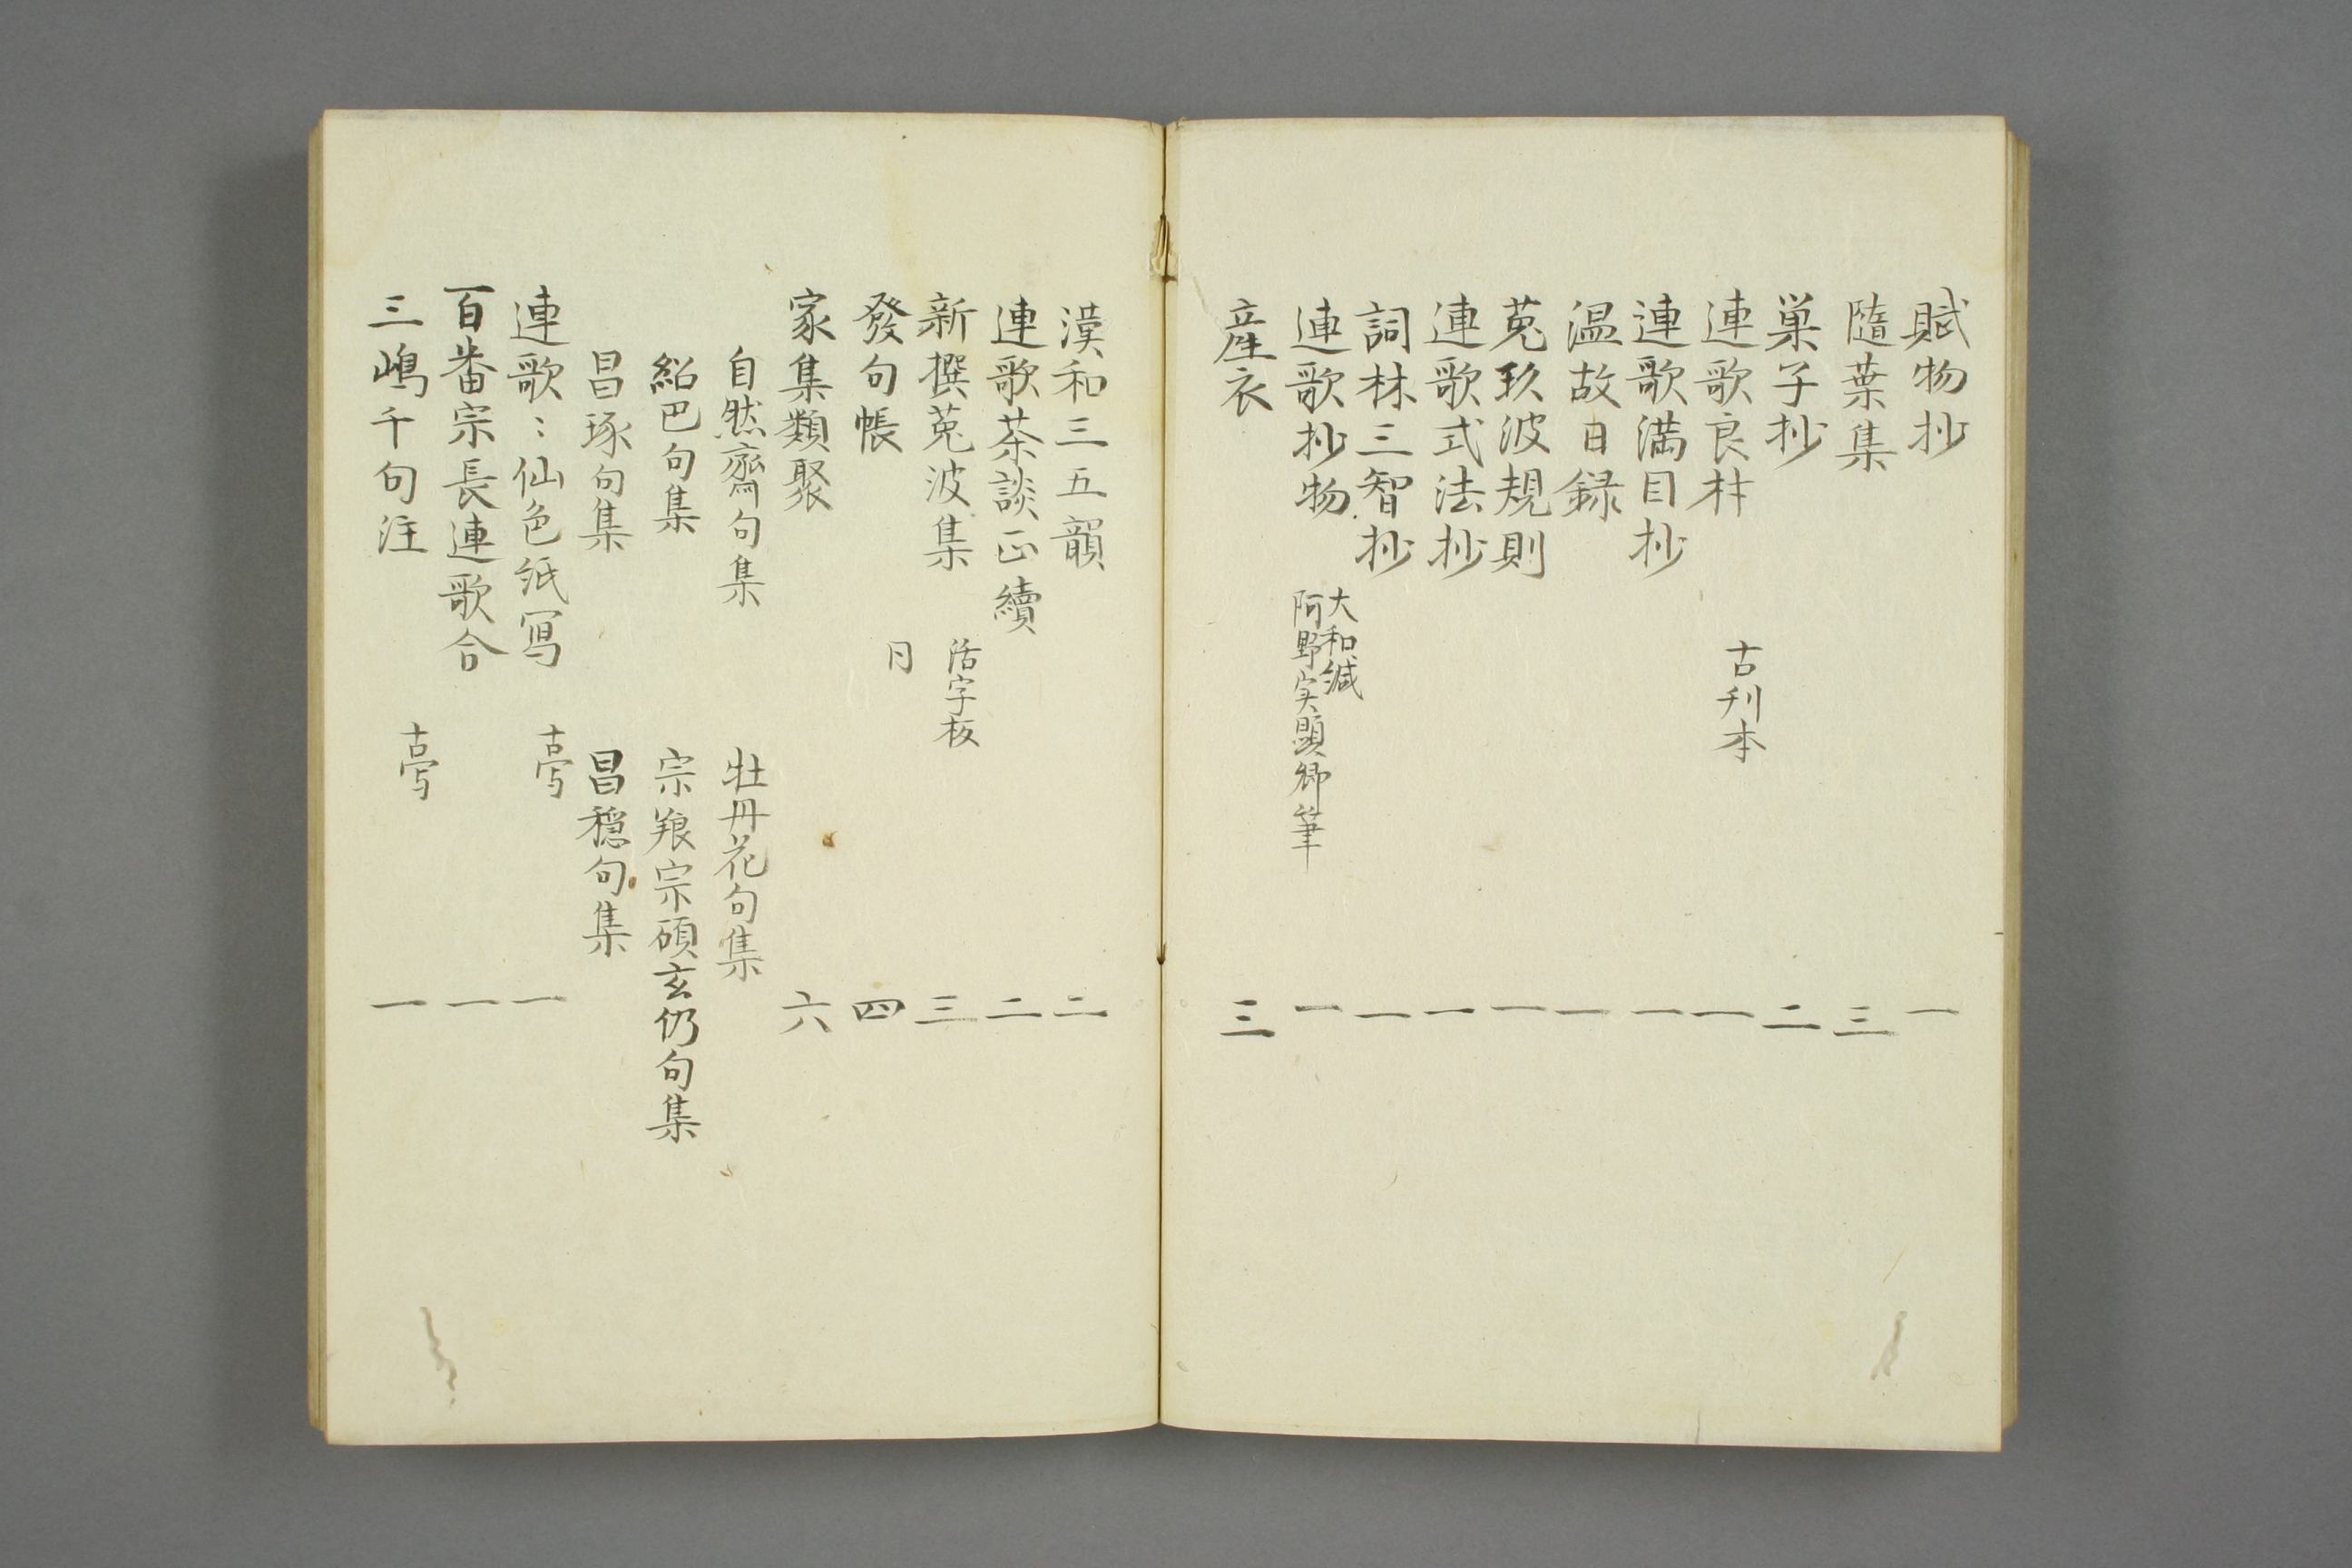 賦物抄 一
隨葉集 三
巣子抄 二
連歌良材 古刋本 一
連歌満目抄 一
温故日録 一
莵玖波規則 一
連歌式法抄 一
詞林三智抄 一
連歌抄物 大和緘 阿野実顕卿筆 一
産衣 三
漢和三五韻 二
連歌茶談正續 二
新撰莵波集 活字板 三
發句帳 同 四
家集類聚 六
自然齋句集 牡丹花句集
紹巴句集 宗養宗碩玄仍句集
昌琢句集 昌穏句集
連歌〻仙色紙冩 古写 一
百番宗長連歌合 一
三嶋千句注 古写 一